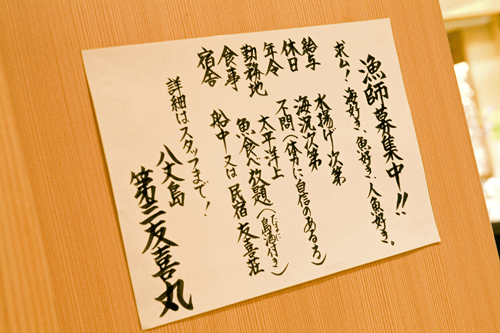 漁師募集中!!
求ム!海好き、魚好き、人魚好き。
給与 水揚げ次第
休日 海況次第
年令 不問(体力に自信のある方)
勤務地 太平洋上
食事 魚食べ放題(たまに島酒付き)
宿舎 船中又は民宿友喜荘
詳細はスタッフまで!
八丈島
第三友喜丸